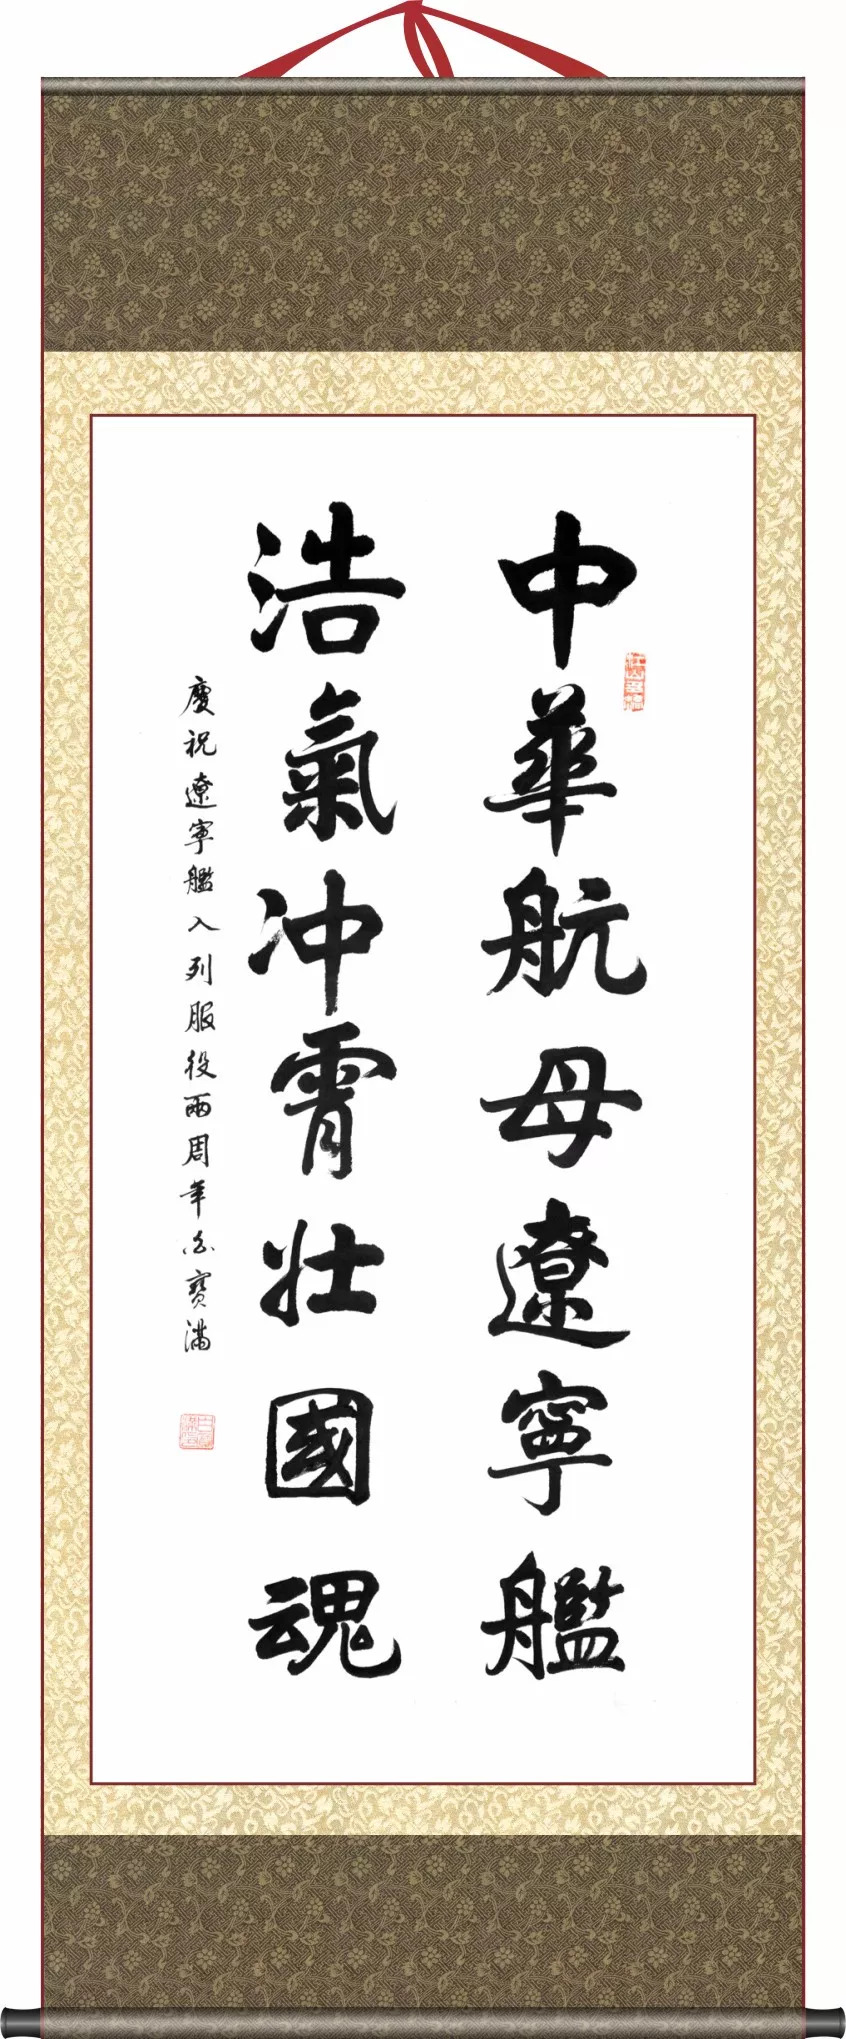 中華航母遼寧艦
浩氣冲霄壯國魂
慶祝遼寧艦入列服役兩周年 白寶滿